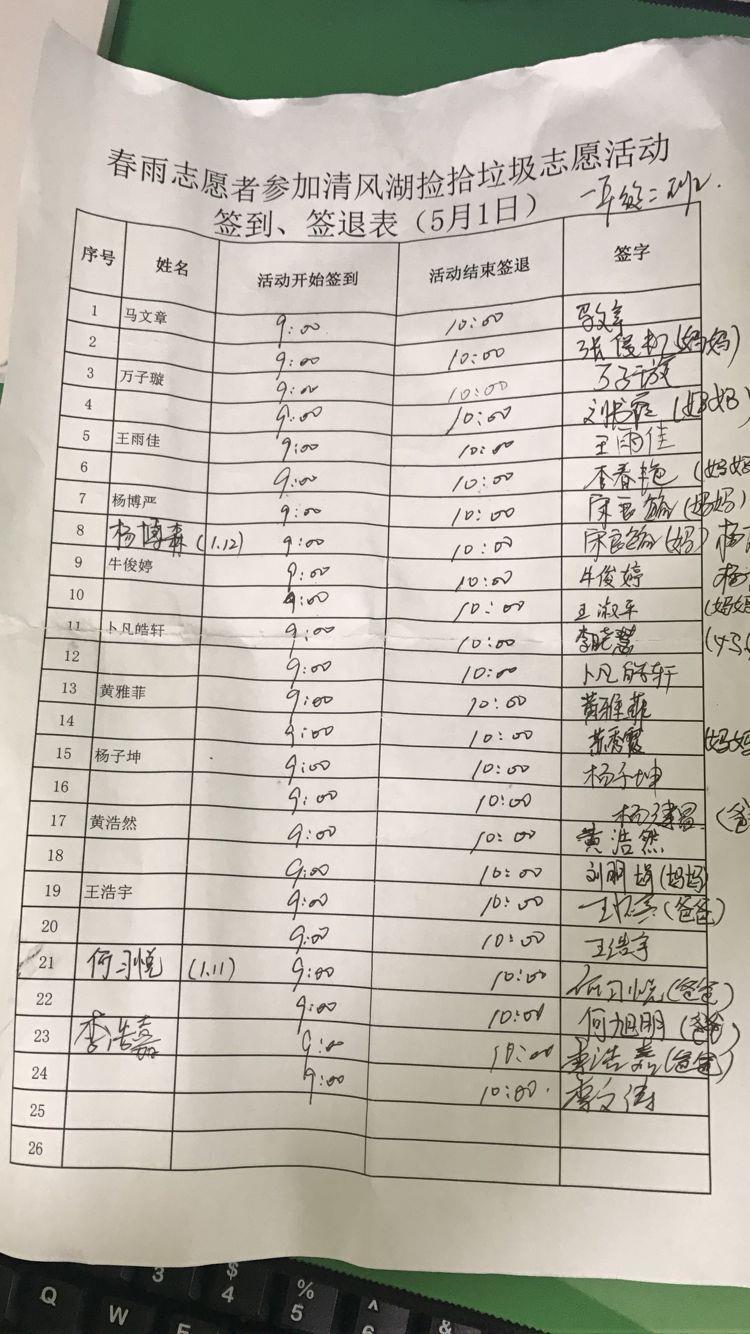 春雨志愿者参加清风湖捡拾垃圾志愿活动
签到、签退表（5月1日） 一年级二班
序号 姓名 活动开始签到 活动结束签退 签字
1 马文章 9:00 10:00
2 9:00 10:00 (妈妈)
3 万子璇 9:00 10:00 万子璇
4 9:00 10:00 (妈妈)
5 王雨佳 9:00 10:00 王雨佳
6 9:00 10:00 李春艳 (妈妈
7 杨博严 9:00 10:00 (妈妈)
8 杨博森 (1.12) 9:00 10:00 (妈) 杨
9 牛俊婷 9:00 10:00 牛俊婷 杨
10 9:00 10:00 王淑平 (妈妈
11 卜凡皓轩 9:00 10:00 李晓慧
12 9:00 10:00 卜凡皓轩
13 黄雅菲 9:00 10:00 黄雅菲
14 9:00 10:00 (妈妈
15 杨子坤 9:00 10:00 杨子坤
16 9:00 10:00 (爸
17 黄浩然 9:00 10:00 黄浩然
18 9:00 10:00 刘明娟 (妈妈)
19 王浩宇 9:00 10:00 (爸爸)
20 9:00 10:00 王浩宇
21 何习悦 (1.11) 9:00 10:00 何习悦 (爸爸)
22 9:00 10:00 何旭明 (爸爸)
23 李浩嘉 9:00 10:00 李浩嘉 (爸爸)
24 9:00 10:00.
25
26
3 $ 4 % 5 ^ 6
Q W